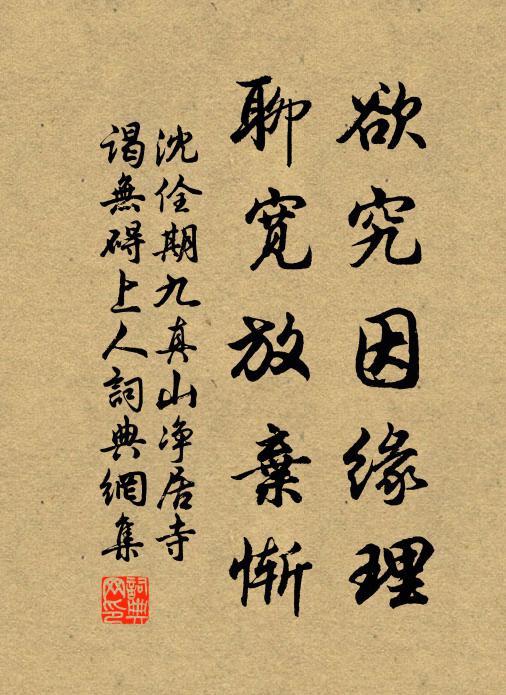 欲究因缘理
聊寬放棄慚
沈佺期九真山净居寺
謁無碍上人詞典網集